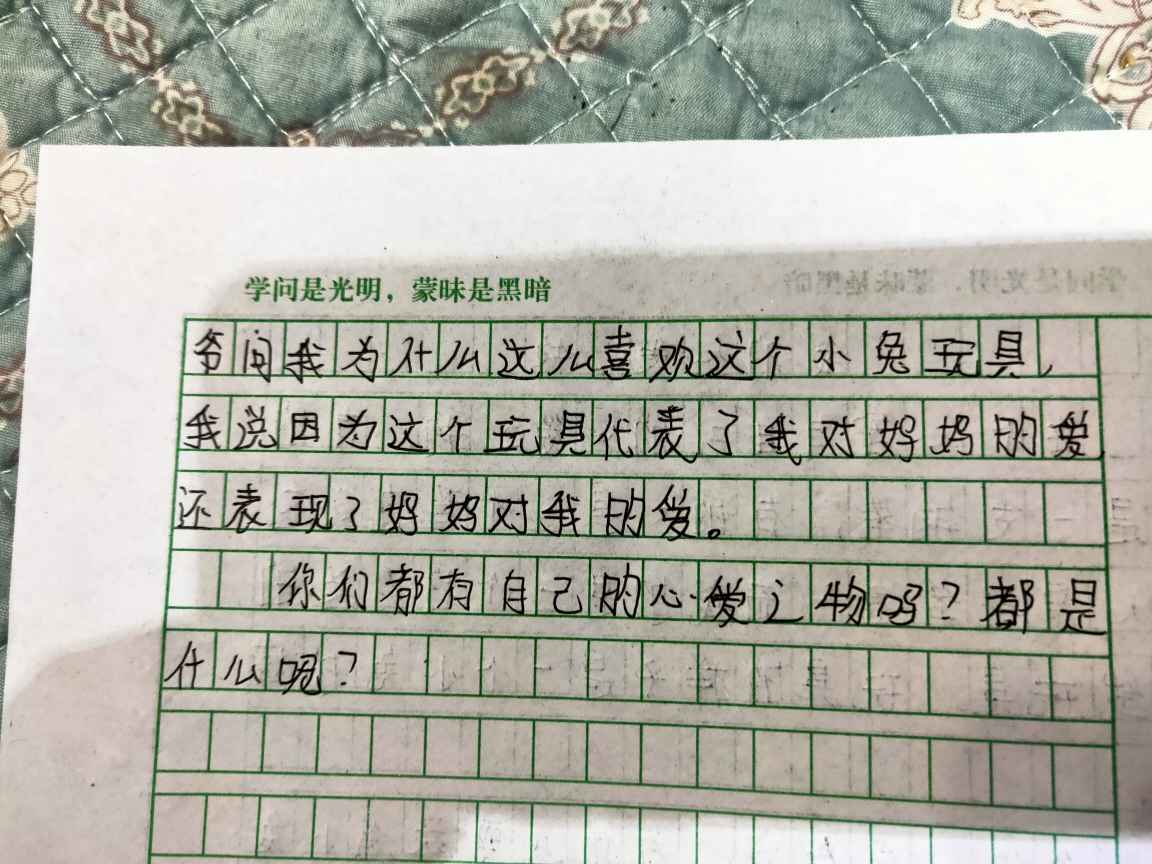 学问是光明，蒙昧是黑暗
爷问我为什么这么喜欢这个小兔玩具，
我说因为这个玩具代表了我对妈妈的爱，
还表现了妈妈对我的爱。
你们都有自己的心爱之物吗？都是
什么呢？